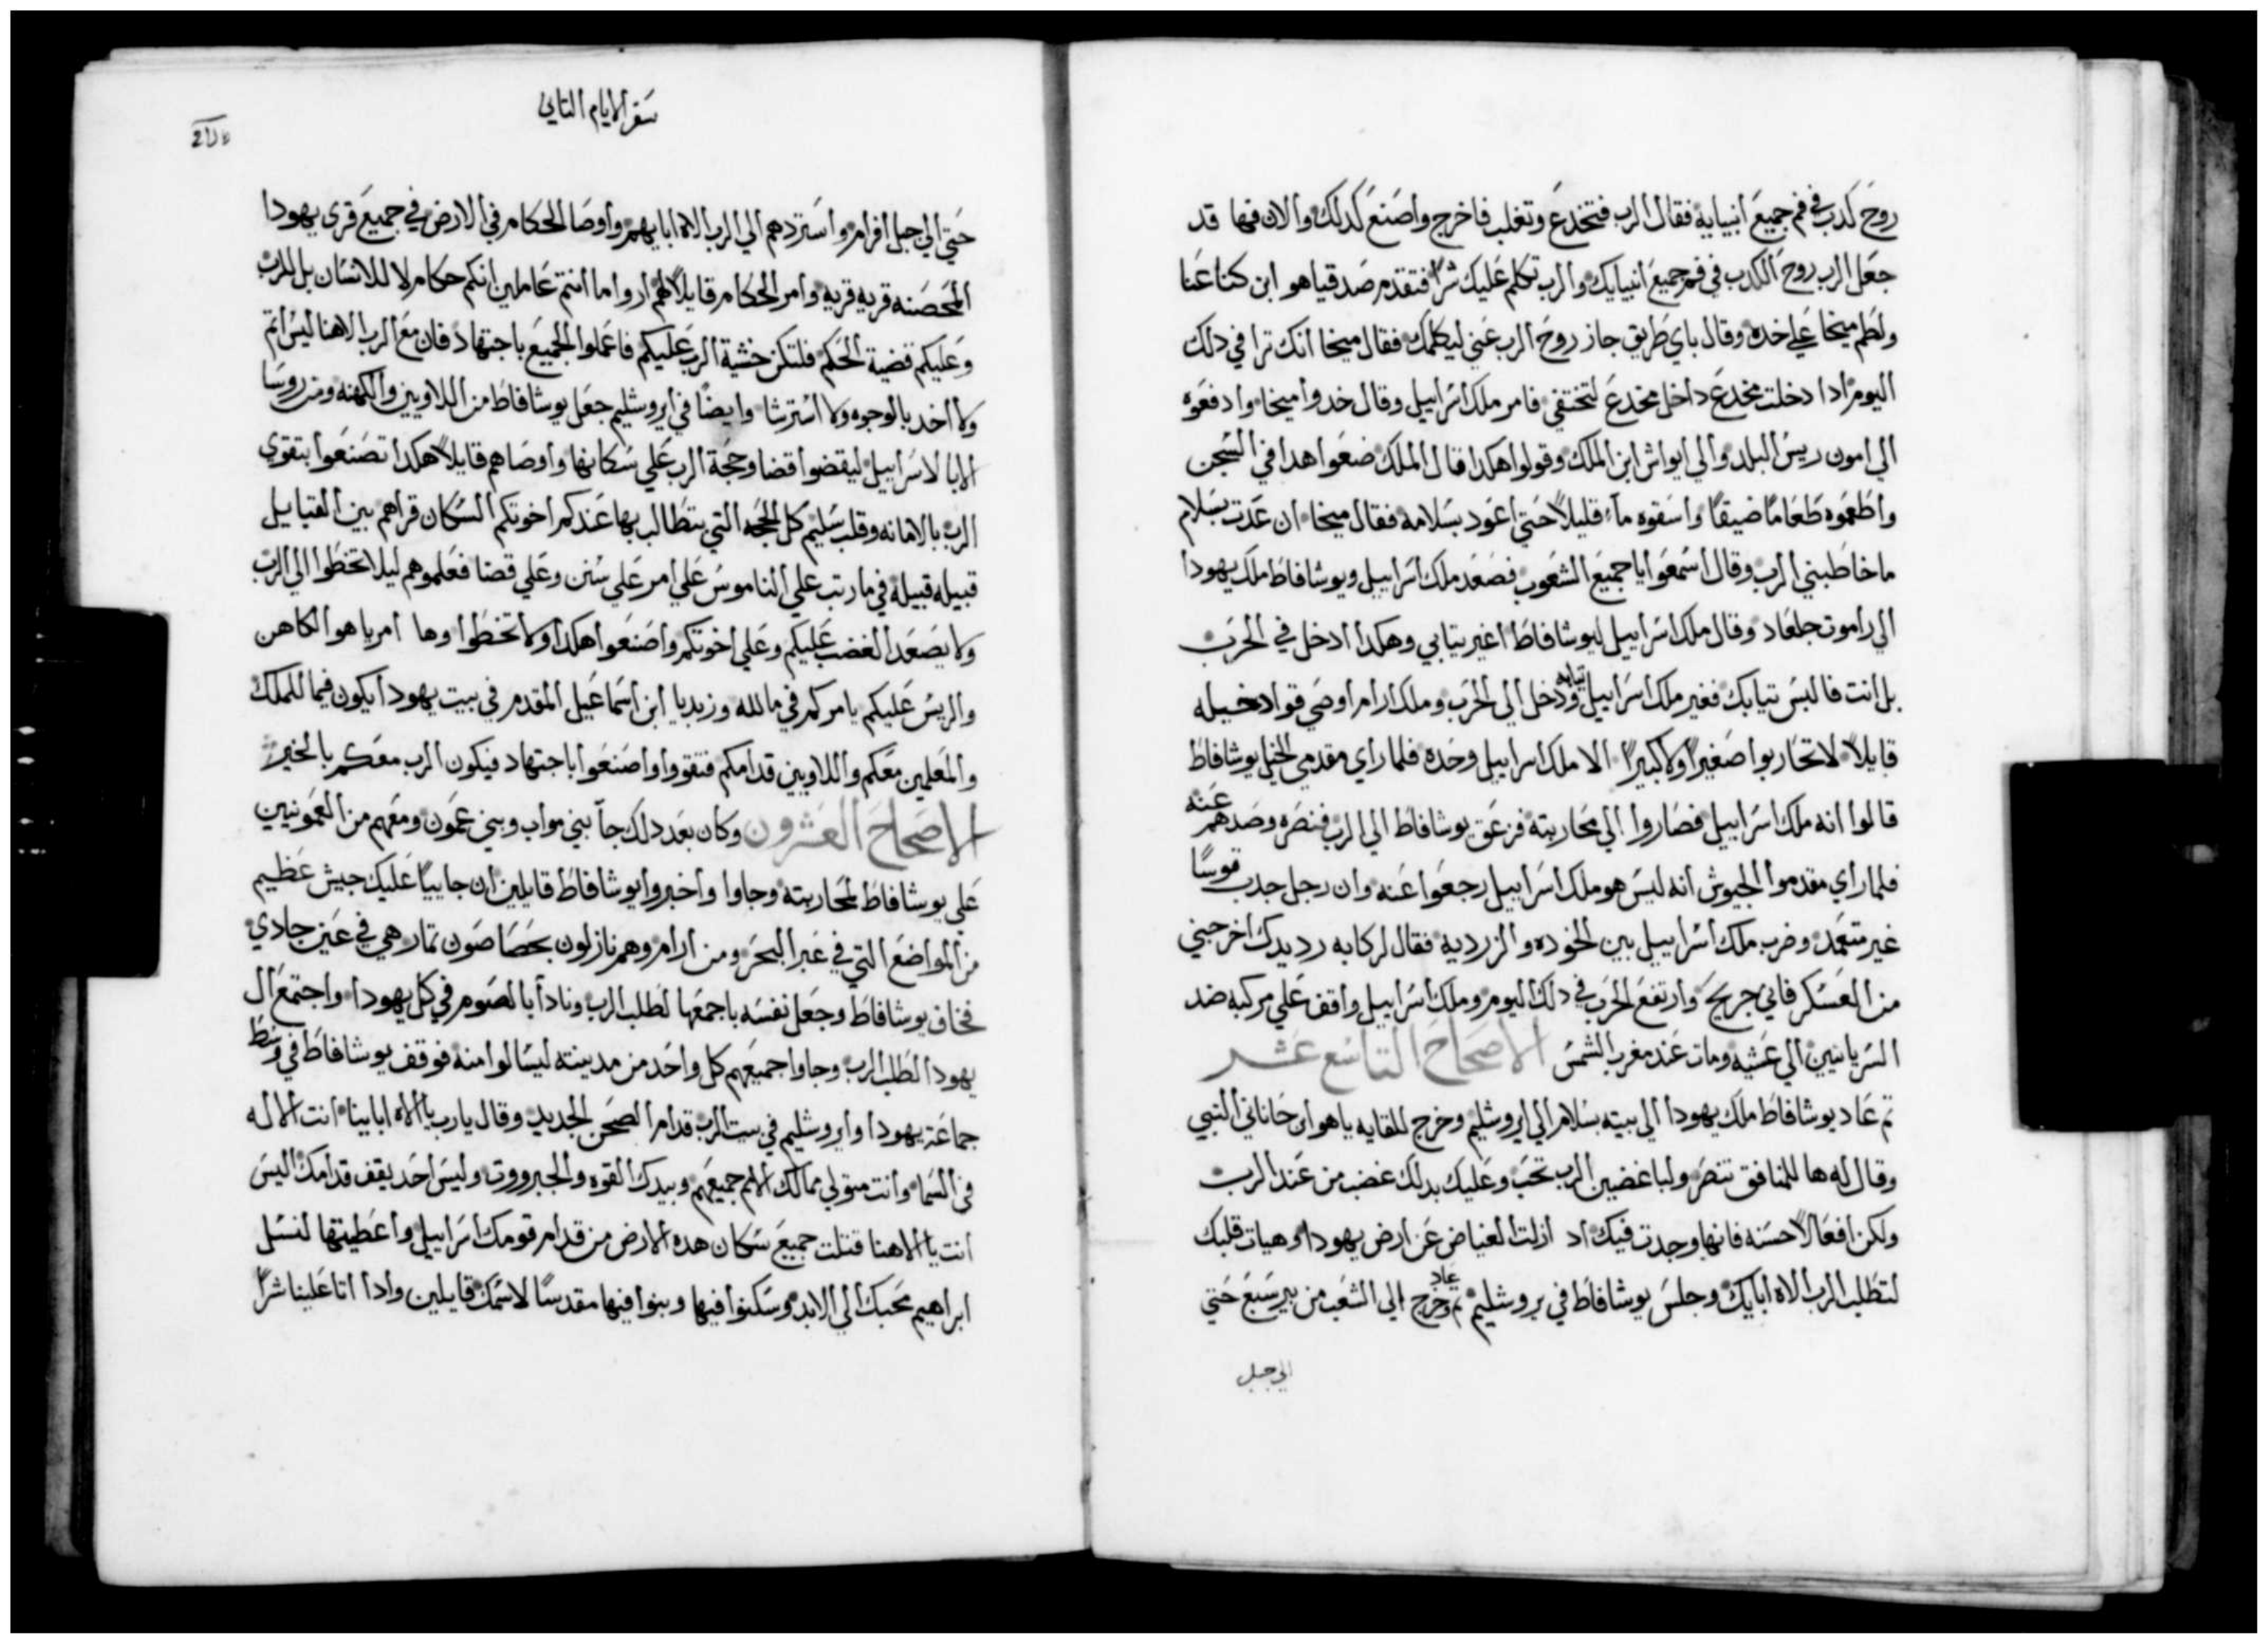 روح كدب في فم جميع انبيايه فقال الرب فتخدع وتغلب فاخرج واصنع كدلك والان فها قد
جعل الرب روح الكدب في فم جميع انبيايك والرب تكلم عليك شرا فتقدم صدقيا هو ابن كنعانا
ولطم ميخا علي خده وقال باي طريق جاز روح الرب عني ليكلمك فقال ميخا انك ترا في دلك
اليوم ادا دخلت مخدع داخل مخدع لتختفي فامر ملك اسراييل وقال خدوا ميخا وادفعوه
الي امون ريس البلد والي ايواش ابن الملك وقولوا هكدا قال الملك ضعوا هدا في السجن
واطعموه طعاما ضيقا واسقوه ماء قليلا حتي اعود بسلامه فقال ميخا ان عدت بسلام
ما خاطبني الرب وقال اسمعوا يا جميع الشعوب فصعد ملك اسراييل ويوشافاط ملك يهودا
الي راموت جلعاد وقال ملك اسراييل ليوشافاط اغير تيابي وهكدا ادخل في الحرب
بل انت فالبس تيابك فغير ملك اسراييل تيابه ودخل الي الحرب وملك ارام اوصي قواد خيله
قايلا لا تحاربوا صغيرا ولا كبيرا الا ملك اسراييل وحده فلما راي مقدمي الخيل يوشافاط
قالوا انه ملك اسراييل فصاروا الي محاربته فزعق يوشافاط الي الرب فنصره وصدهم عنه
فلما راي مقدموا الجيوش انه ليس هو ملك اسراييل رجعوا عنه وان رجل جدب قوسا
غير متعمد وضرب ملك اسراييل بين الخوده والزرديه فقال لركابه رد يدك اخرجني
من العسكر فاني جريح وارتفع الحرب في دلك اليوم وملك اسراييل واقف علي مركبه ضد
السريانيين الي عشيه ومات عند مغرب الشمس الاصحاح التاسع عشر
تم عاد يوشافاط ملك يهودا الي بيته بسلام الي ايروشليم وخرج للقايه ياهو ابن حاناني النبي
وقال له ها للمنافق تنصر ولباغضين الرب تحب وعليك بدلك غضب من عند الرب
ولكن افعالا حسنه فانها وجدت فيك اد ازلت الغياض عن ارض يهودا وهيات قلبك
لتطلب الرب الاه ابايك وجلس يوشافاط في يروشليم تم عاد وخرج الي الشعب من بير سبع حتي
الي جبل
سفر الايام التاني
حتي الي جبل افرام واستردهم الي الرب الاه ابايهم واوصا الحكام في الارض في جميع قري يهودا
المحصنه قريه قريه وامر الحكام قايلا لهم اروا ما انتم عاملين انكم حكام لا للانسان بل للرب
وعليكم قضية الحكم فلتكن خشية الرب عليكم فاعملوا الجميع باجتهاد فان مع الرب الاهنا ليس اتم
ولا اخد بالوجوه ولا استرشا وايضا في ايروشليم جعل يوشافاط من اللاويين والكهنه ومن روسا
الابا لاسراييل ليقضوا قضا وحجة الرب علي سكانها واوصاهم قايلا هكدا تصنعوا بتقوي
الرب بالامانه وقلب سليم كل الحجه التي يتطالب بها عندكم اخوتكم السكان قراهم بين القبايل
قبيله قبيله في ما رتب علي الناموس علي امر علي سنن وعلي قضا فعلموهم ليلا تخطوا الي الرب
ولا يصعد الغضب عليكم وعلي اخوتكم واصنعوا هكدا ولا تخطوا وها امريا هو الكاهن
والريس عليكم يامركم في ما لله وزبديا ابن اسماعيل المقدم في بيت يهودا يكون فيما للملك
والمعلمين معكم واللاويين قدامكم فتقووا واصنعوا باجتهاد فيكون الرب معكم بالخير
الاصحاح العشرون وكان بعد دلك جآ بني مواب وبني عمون ومعهم من العمونيين
علي يوشافاط لمحاربته وجاوا واخبروا يوشافاط قايلين ان جاييا عليك جيش عظيم
من المواضع التي في عبر البحر ومن ارام وهم نازلون بحصاصون تمار هي في عين جادي
فخاف يوشافاط وجعل نفسه باجمعها لطلب الرب ونادا بالصوم في كل يهودا واجتمع ال
يهودا لطلب الرب وجاوا جميعهم كل واحد من مدينته ليسالوا منه فوقف يوشافاط في وسط
جماعة يهودا وايروشليم في بيت الرب قدام الصحن الجديد وقال يارب يا الاه ابايينا انت الاله
في السما وانت متولي ممالك الامم جميعهم وبيدك القوه والجبرووت وليس احد يقف قدامك اليس
انت يا الاهنا قتلت جميع سكان هده الارض من قدام قومك اسراييل واعطيتها لنسل
ابراهيم محبك الي الابد وسكنوا فيها وبنوا فيها مقدسا لاسمك قايلين وادا اتا علينا شرا